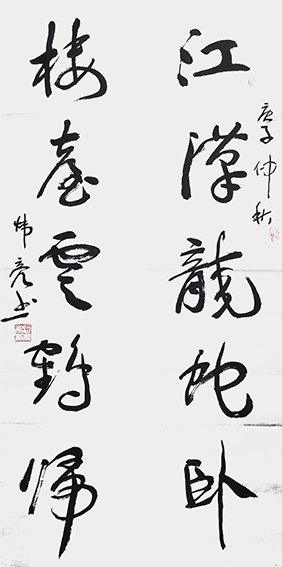 江漢龍蛇卧
庚子仲秋
樓臺雲鶴歸
炜亮书